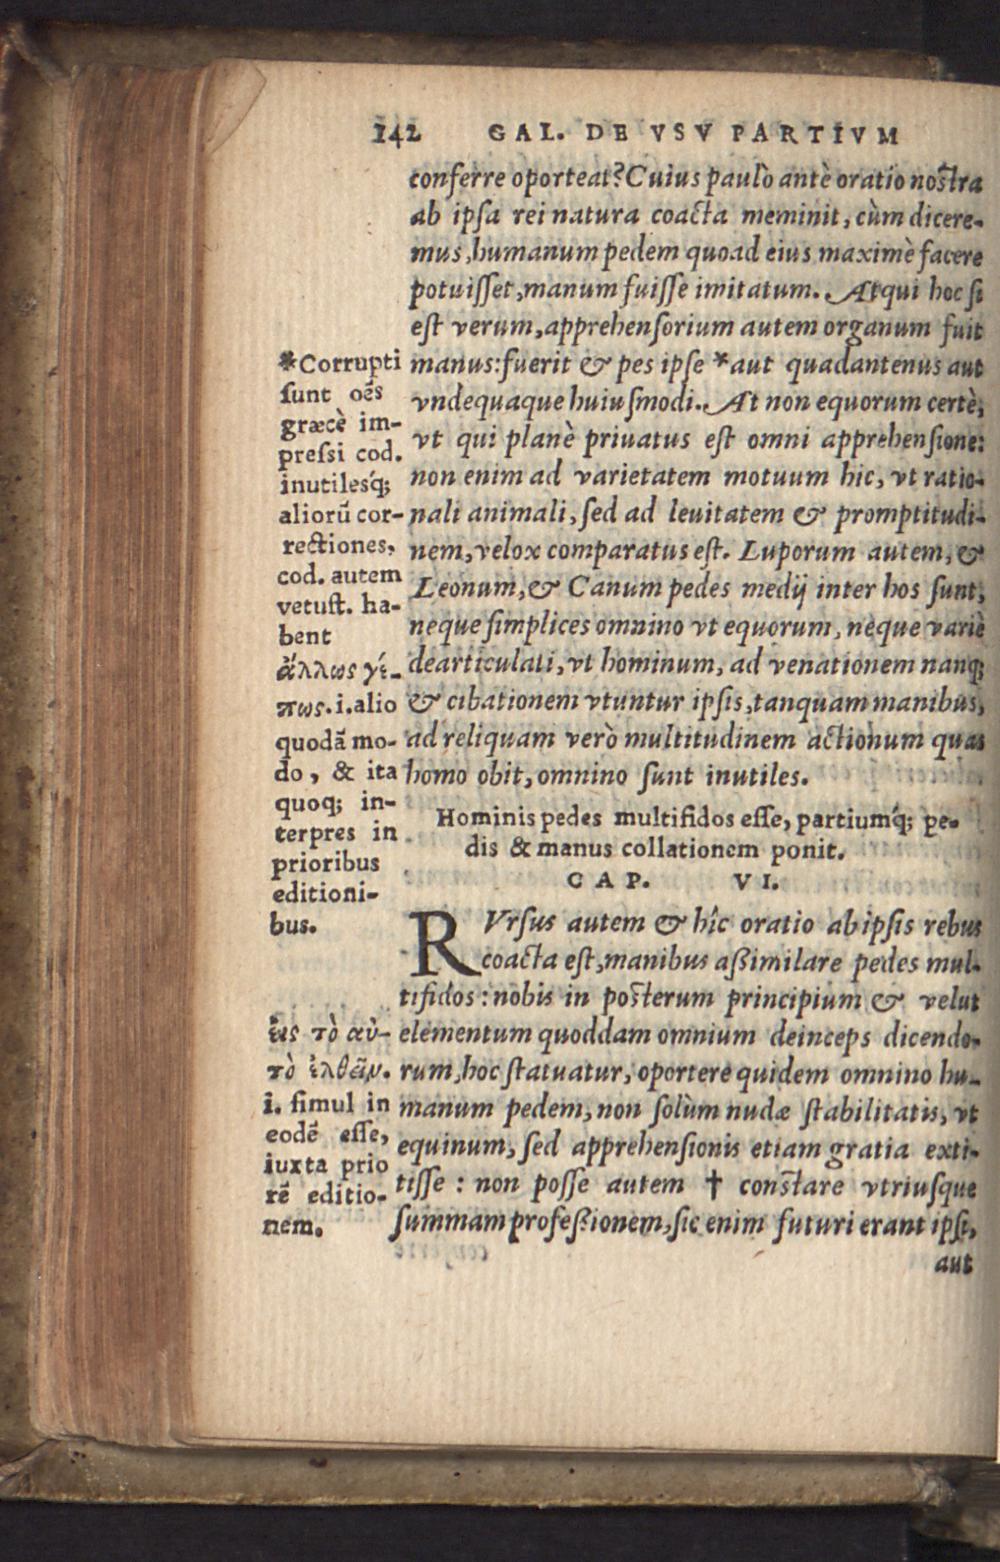 142 GAL. DE VSV PARTIVM
conferre oporteat? Cuius paulò antè oratio nostra
ab ipsa rei natura coacta meminit, cùm dicere-
mus, humanum pedem quoad eius maximè facere
potuisset, manum fuisse imitatum. Atqui hoc si
est verum, apprehensorium autem organum fuit
manus: fuerit & pes ipse *aut quadantenus aut
vndequaque huiusmodi. At non equorum certè,
vt qui planè priuatus est omni apprehensione:
non enim ad varietatem motuum hic, vt ratio-
nali animali, sed ad leuitatem & promptitudi-
nem, velox comparatus est. Luporum autem, &
Leonum, & Canum pedes medij inter hos sunt,
neque simplices omnino vt equorum, neque variè
dearticulati, vt hominum, ad venationem nanq;
& cibationem vtuntur ipsis, tanquam manibus,
ad reliquam verò multitudinem actionum quas
homo obit, omnino sunt inutiles.
*Corrupti
sunt oẽs
græcè im-
pressi cod.
inutilesq́;
aliorũ cor-
rectiones,
cod. autem
vetust. ha-
bent
ἄλλως γέ-
πως. i. alio
quodã mo-
do, & ita
quoq; in-
terpres in
prioribus
editioni-
bus.
Hominis pedes multifidos esse, partiumq́; pe-
dis & manus collationem ponit.
CAP. VI.
RVrsus autem & hîc oratio ab ipsis rebus
coacta est, manibus assimilare pedes mul-
tifidos: nobis in posterum principium & velut
elementum quoddam omnium deinceps dicendo-
rum, hoc statuatur, oportere quidem omnino hu-
manum pedem, non solùm nudæ stabilitatis, vt
equinum, sed apprehensionis etiam gratia exti-
tisse: non posse autem † constare vtriusque
summam professionem, sic enim futuri erant ipsi,
εἰς τὸ αὐ-
τὸ ἐλθεῖν.
i. simul in
eodẽ esse,
iuxta prio
rẽ editio-
nem.
aut